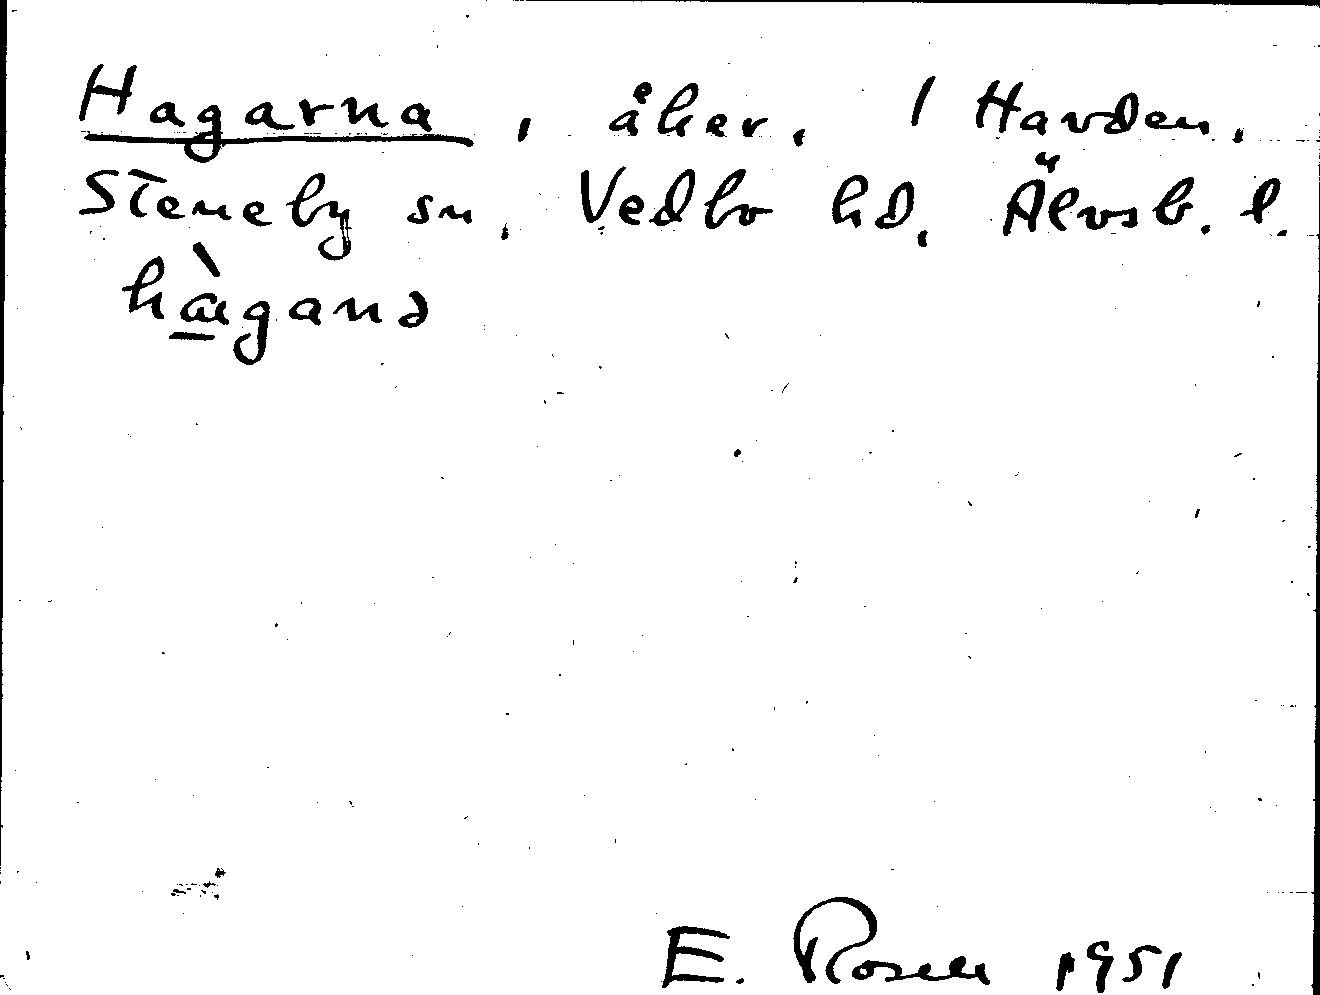 Hagarna, åker. / Havden.
Steneby sn, Vedbo hd, Älvsb. l.
hàganə
E. Rosell 1951